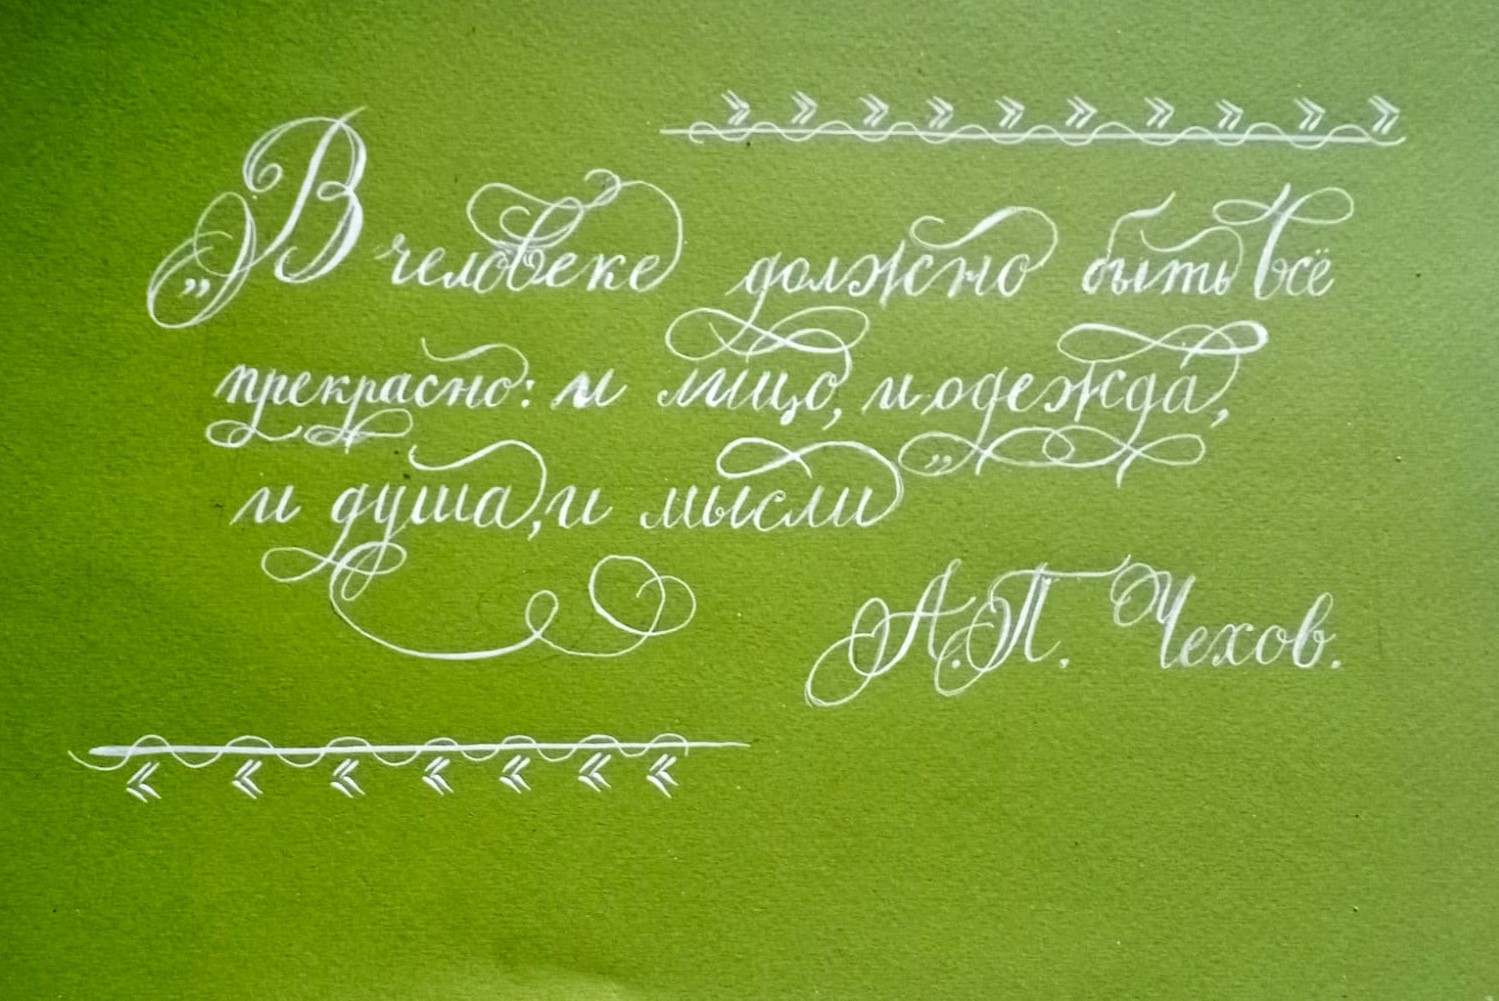 „В человеке должно быть всё
прекрасно: и лицо, и одежда,
и душа, и мысли”
А.П. Чехов.